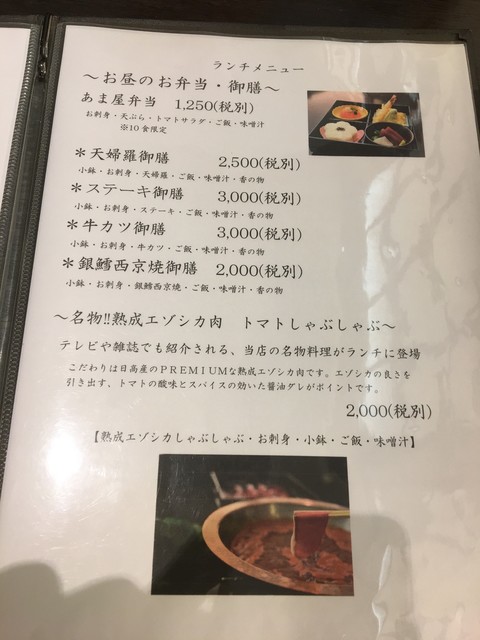 ランチメニュー
～お昼のお弁当・御膳～
あま屋弁当 1,250(税別)
お刺身・天ぷら・トマトサラダ・ご飯・味噌汁
※10食限定
＊天婦羅御膳 2,500(税別)
小鉢・お刺身・天婦羅・ご飯・味噌汁・香の物
＊ステーキ御膳 3,000(税別)
小鉢・お刺身・ステーキ・ご飯・味噌汁・香の物
＊牛カツ御膳 3,000(税別)
小鉢・お刺身・牛カツ・ご飯・味噌汁・香の物
＊銀鱈西京焼御膳 2,000(税別)
小鉢・お刺身・銀鱈西京焼・ご飯・味噌汁・香の物
～名物!!熟成エゾシカ肉 トマトしゃぶしゃぶ～
テレビや雑誌でも紹介される、当店の名物料理がランチに登場
こだわりは日高産のPREMIUMな熟成エゾシカ肉です。エゾシカの良さを
引き出す、トマトの酸味とスパイスの効いた醤油ダレがポイントです。
2,000(税別)
【熟成エゾシカしゃぶしゃぶ・お刺身・小鉢・ご飯・味噌汁】